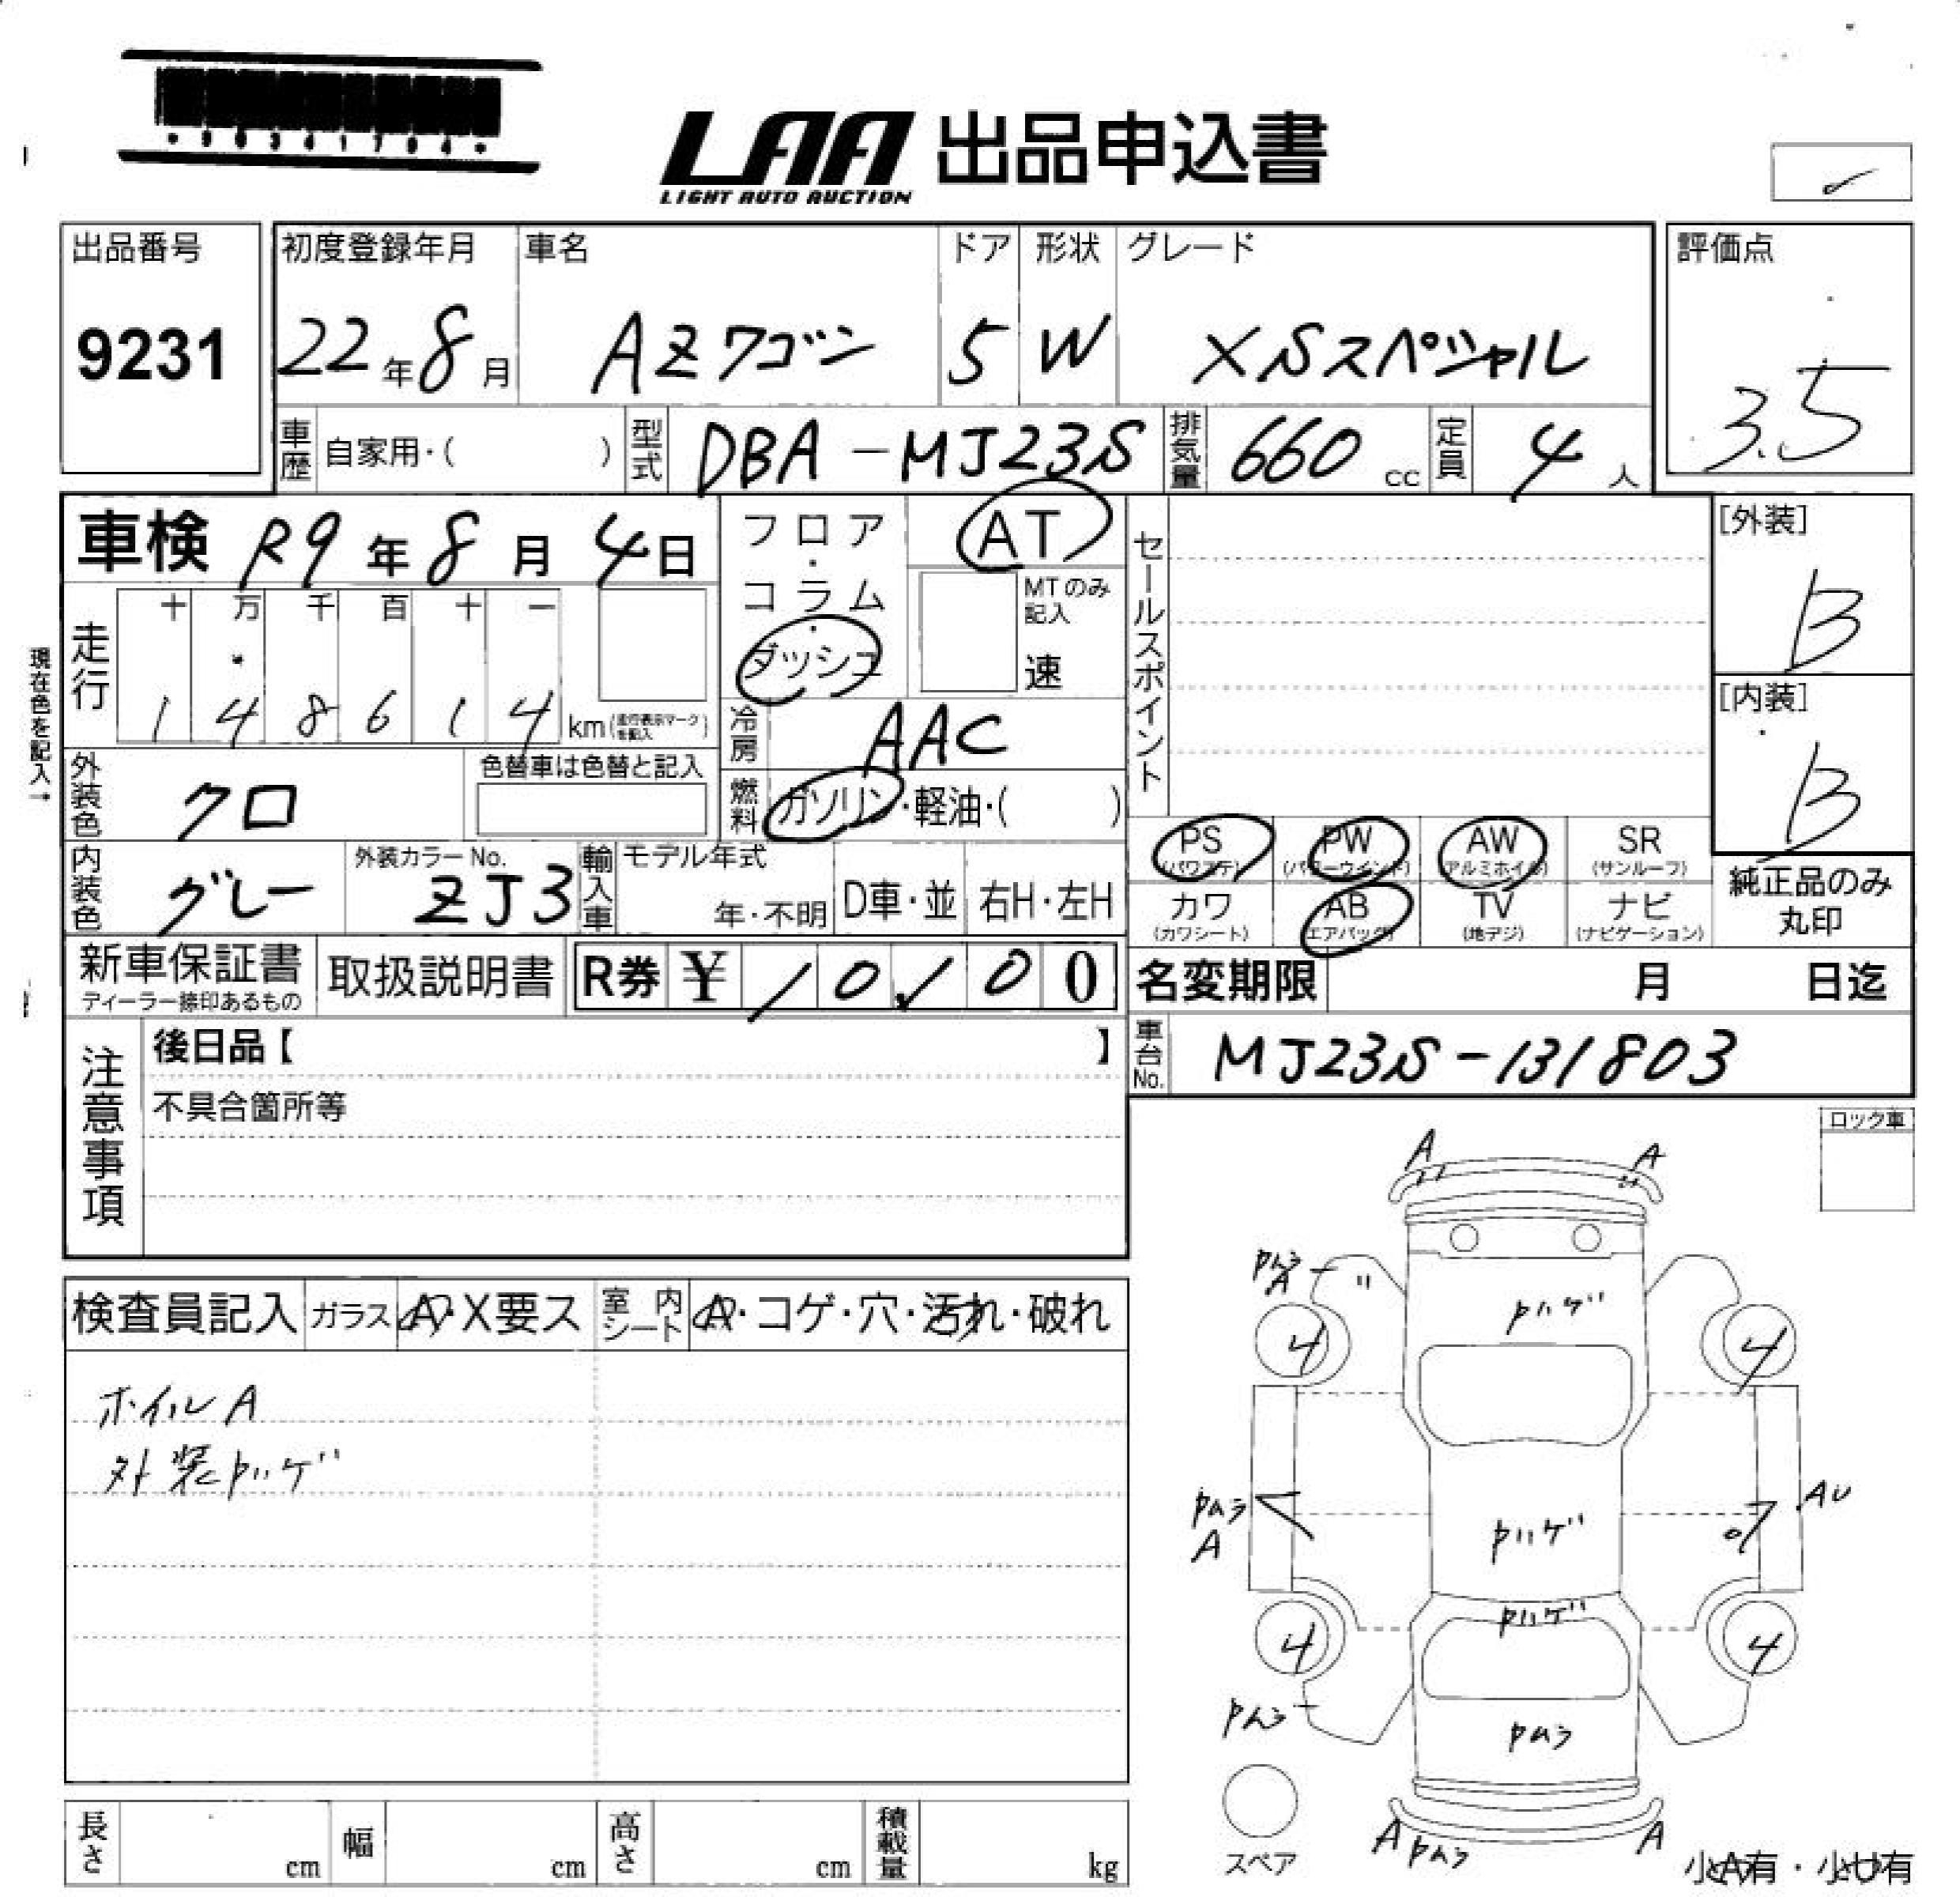 LAA 出品申込書
LIGHT AUTO AUCTION
出品番号 初度登録年月 車名 ドア 形状 グレード 評価点
9231 22年8月 AZワゴン 5 W XSスペシャル 3.5
車歴 自家用・( ) 型式 DBA-MJ23S 排気量 660 cc 定員 4 人
車検 R9年8月4日 フロア・コラム・ダッシュ AT セールスポイント [外装] B
MTのみ記入 速
現在色を記入→
走行 十 万 千 百 十 一
1 4 8 6 1 4 km(走行表示マークを記入)
[内装] B
冷房 AAC
外装色 クロ 色替車は色替と記入 燃料 ガソリン・軽油・( )
PS (パワステ) PW (パワーウインド) AW (アルミホイル) SR (サンルーフ)
純正品のみ丸印
内装色 グレー 外装カラーNo. ZJ3 輸入車 モデル年式 年・不明 D車・並 右H・左H
カワ (カワシート) AB (エアバッグ) TV (地デジ) ナビ (ナビゲーション)
新車保証書 ディーラー捺印あるもの 取扱説明書 R券 ¥ 0
名変期限 月 日迄
注意事項 後日品【 】
車台No. MJ23S-131803
不具合箇所等
ロック車
A A
検査員記入 ガラス A・X要ス 室内シート A・コゲ・穴・汚れ・破れ
A 〃 ハゲ
4 4
ホイルA
外装ハゲ
A AU
ハゲ
ハゲ
4 4
A A
スペア
小A有・小U有
長さ cm 幅 cm 高さ cm 積載量 kg